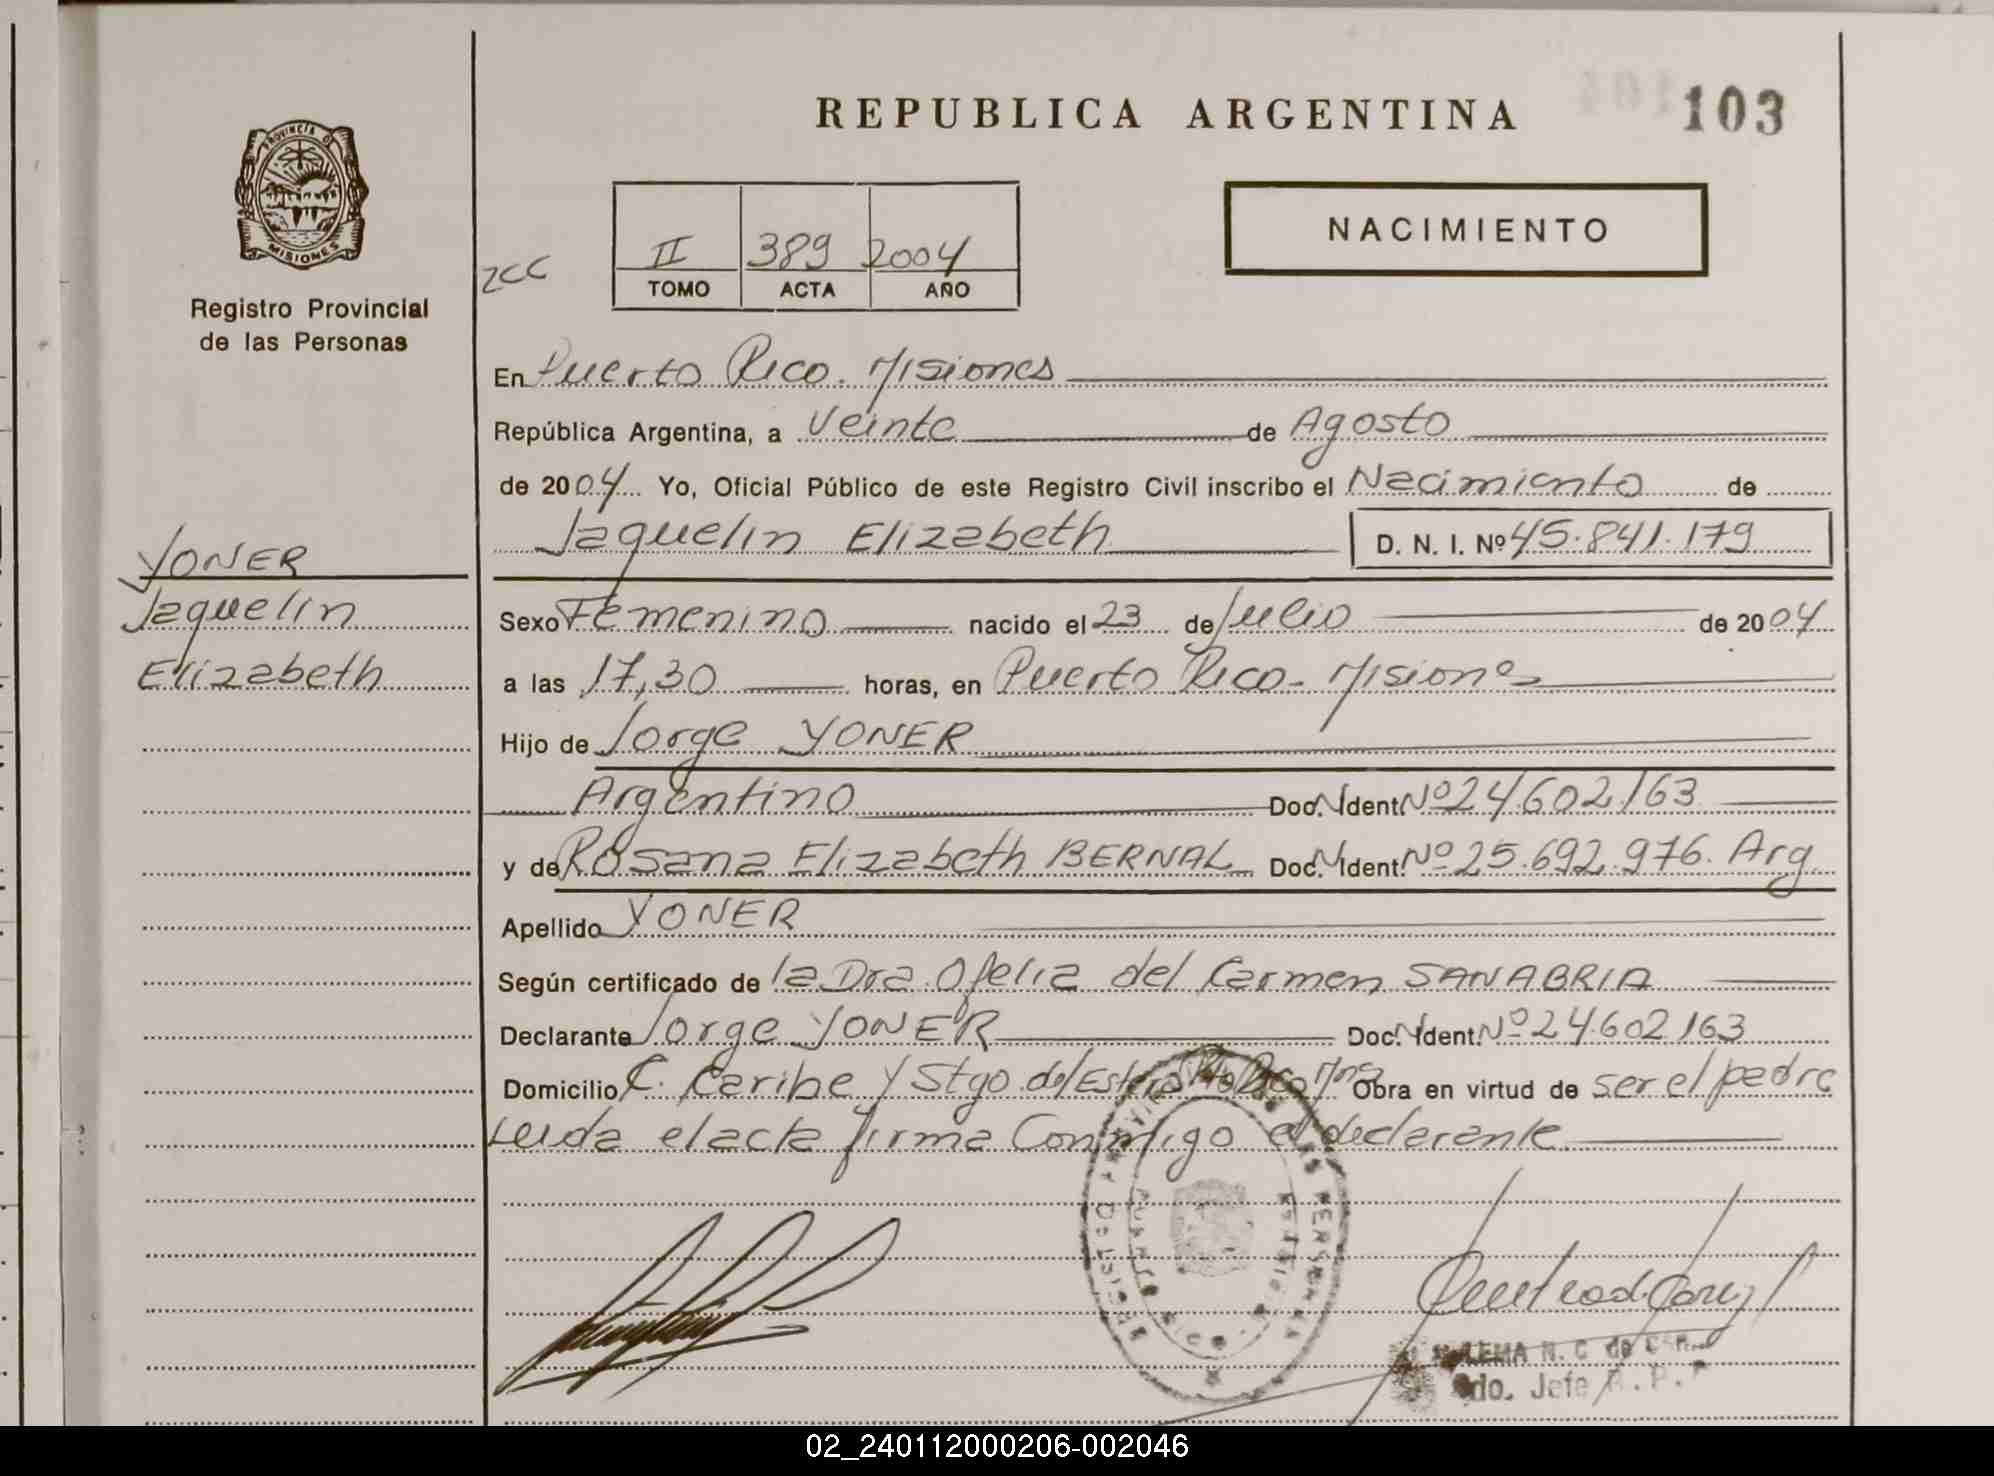 REPUBLICA ARGENTINA
103
PROVINCIA DE
MISIONES
Registro Provincial
de las Personas
NACIMIENTO
II 389 2004
TOMO ACTA AÑO
zcc
En Puerto Rico. Misiones
República Argentina, a Veinte de Agosto
de 2004 Yo, Oficial Público de este Registro Civil inscribo el Nacimiento de
Jaquelin Elizabeth D. N. I. Nº 45.841.179
YONER
Jaquelin
Elizabeth
Sexo Femenino nacido el 23 de Julio de 2004
a las 17,30 horas, en Puerto Rico - Misiones
Hijo de Jorge YONER
Argentino Doc. N. Ident. Nº 24.602.163
y de Rosana Elizabeth BERNAL Doc. N. Ident. Nº 25.692.976. Arg
Apellido YONER
Según certificado de la Dra. Ofelia del Carmen SANABRIA
Declarante Jorge YONER Doc. N. Ident. Nº 24.602.163
Domicilio C. Caribe y Stgo. del Estero Pto Rico Mns Obra en virtud de ser el padre
Leida el acta firma Conmigo el declarante
N. C. de
Jefe R. P. P
02_240112000206-002046